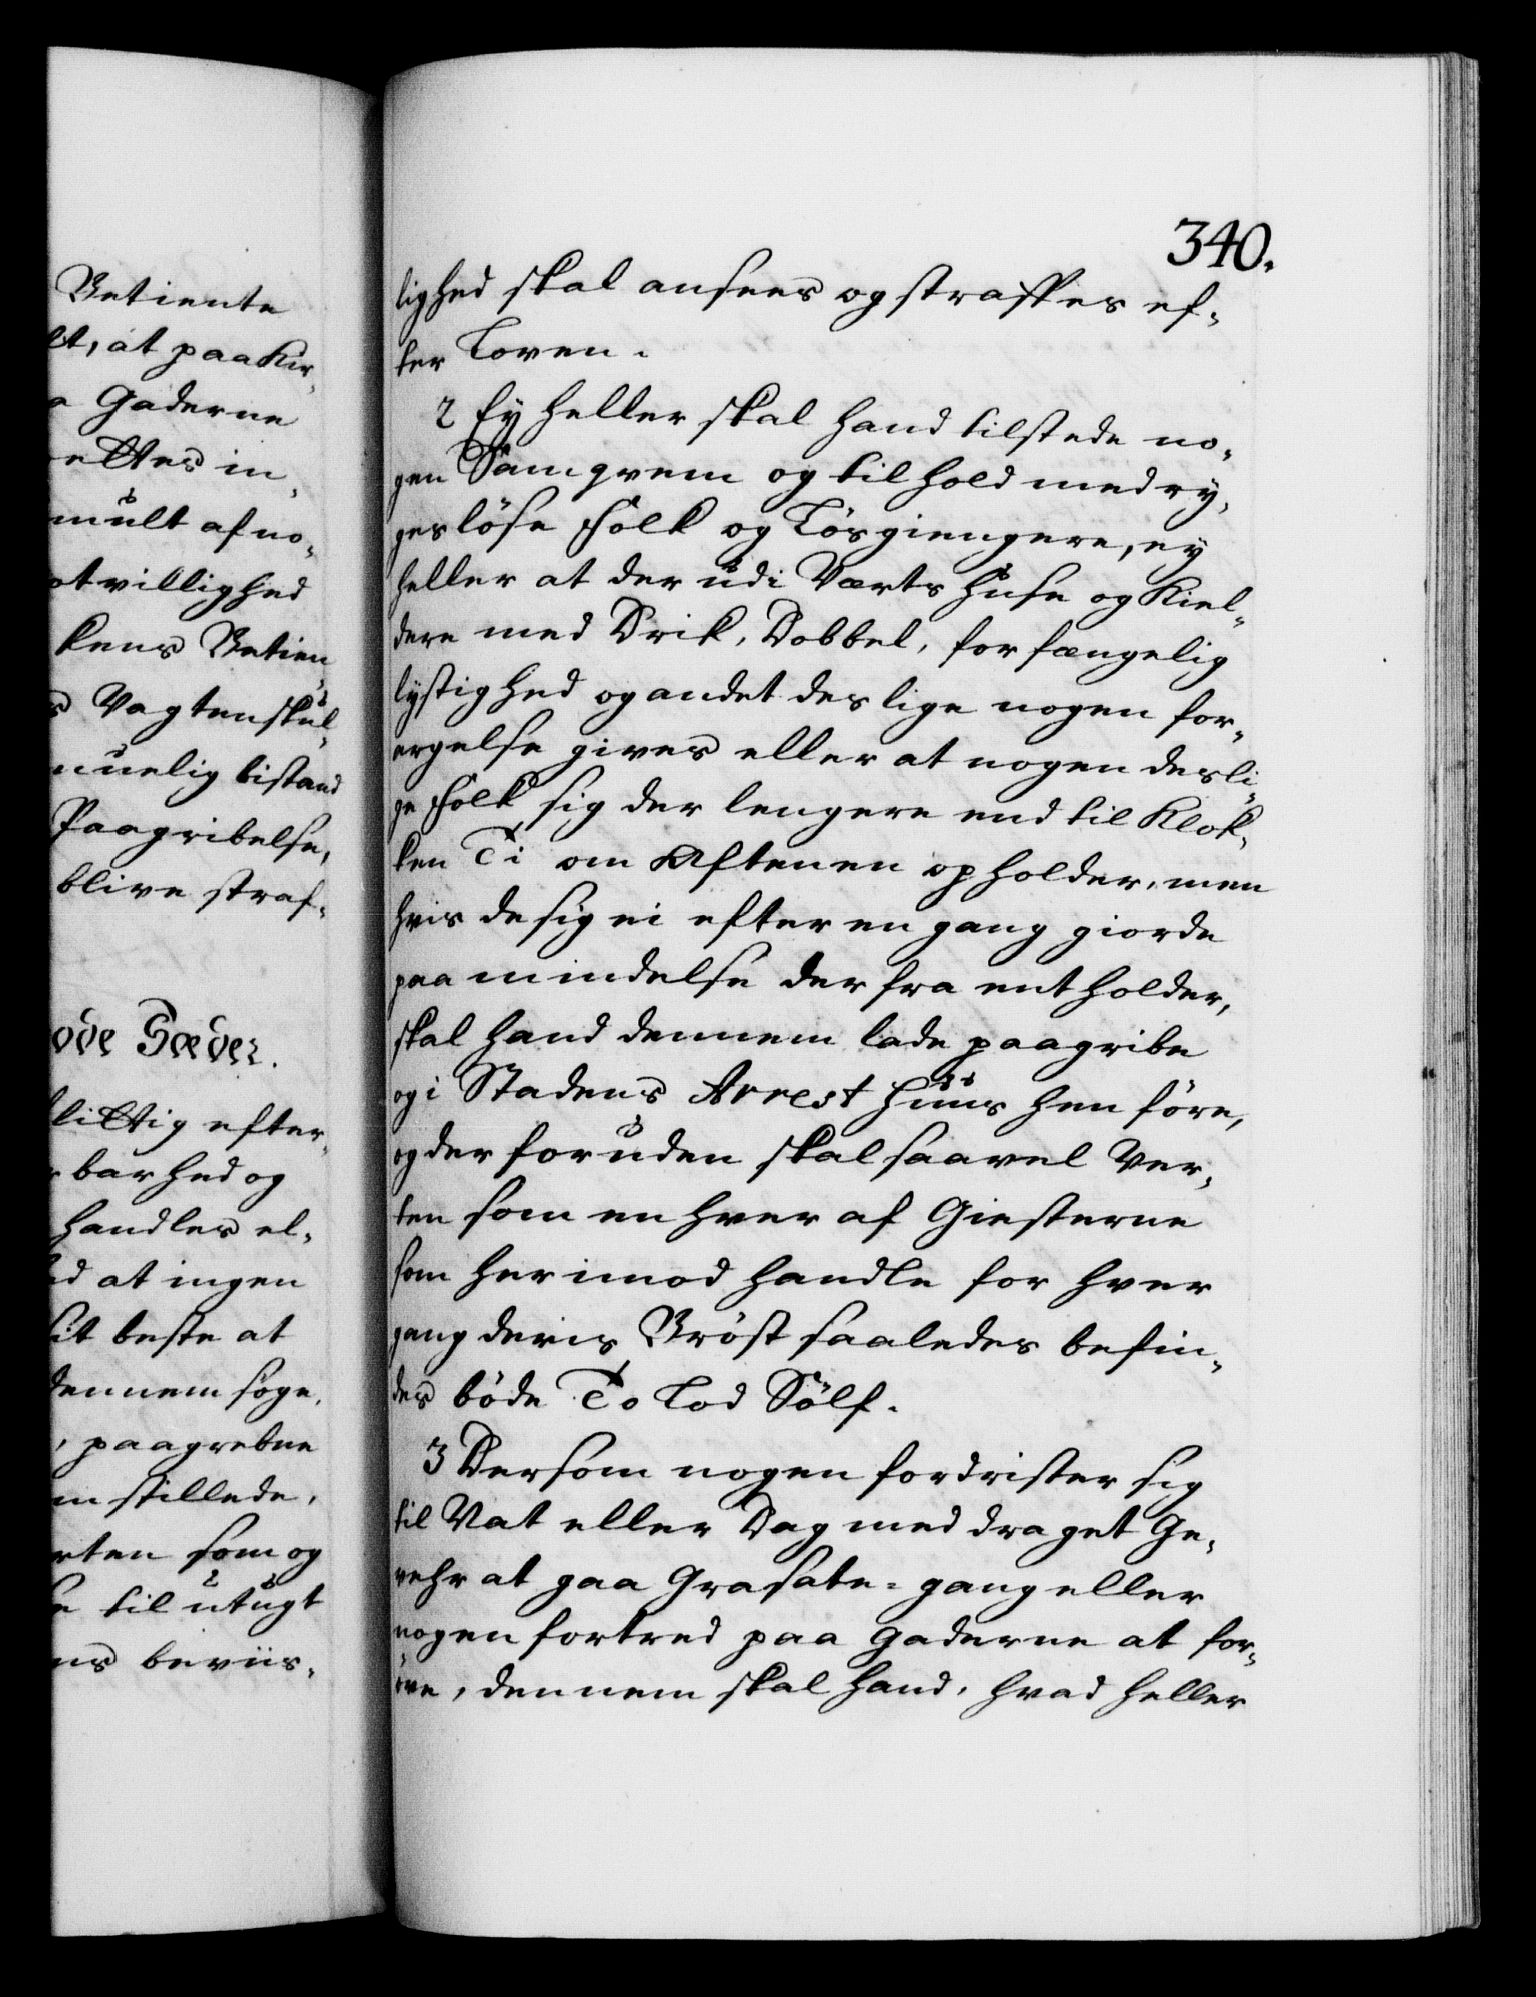 Betiente
et, at paa Kir-
Gaderne
ettes in-
mult af no-
otvillighed
kens Betien-
s Vagten skul-
nuelig bistand
Paagribelse,
blive straf-
ode Sæder.
flittig efter-
barhed og
handles el-
ed at ingen
sit beste at
dennem søge,
, paagrebne
m stillede,
rten som og
e til utugt
ns beviis-
340.
lighed skal ansees og straffes ef-
ter Loven.
2 Ey heller skal hand tilstede no-
gen Samqvem og tilhold med ry-
gesløse Folk og Løsgiengere, ey
heller at der udi Værtshuse og Kiel-
dere med Drik, Dobbel, forfængelig
lystighed og andet deslige nogen for-
argelse gives eller at nogen desli-
ge Folk sig der lengere end til Klok-
ken Ti om Aftenen opholder, men
hvis de sig ei efter en gang giorde
paamindelse derfra entholder,
skal hand dennem lade paagribe
og i Stadens Arrest huus hen føre,
og der foruden skal saavel Ver-
ten som en hver af Giesterne
som herimod handle for hver
gang deris Brøst saaledes befin-
des bøde To Lod Sølf.
3 Dersom nogen fordrister sig
til Nat eller Dag med draget Ge-
vehr at gaa Grasate-gang eller
nogen fortred paa Gaderne at for-
øve, dennem skal hand, hvad heller